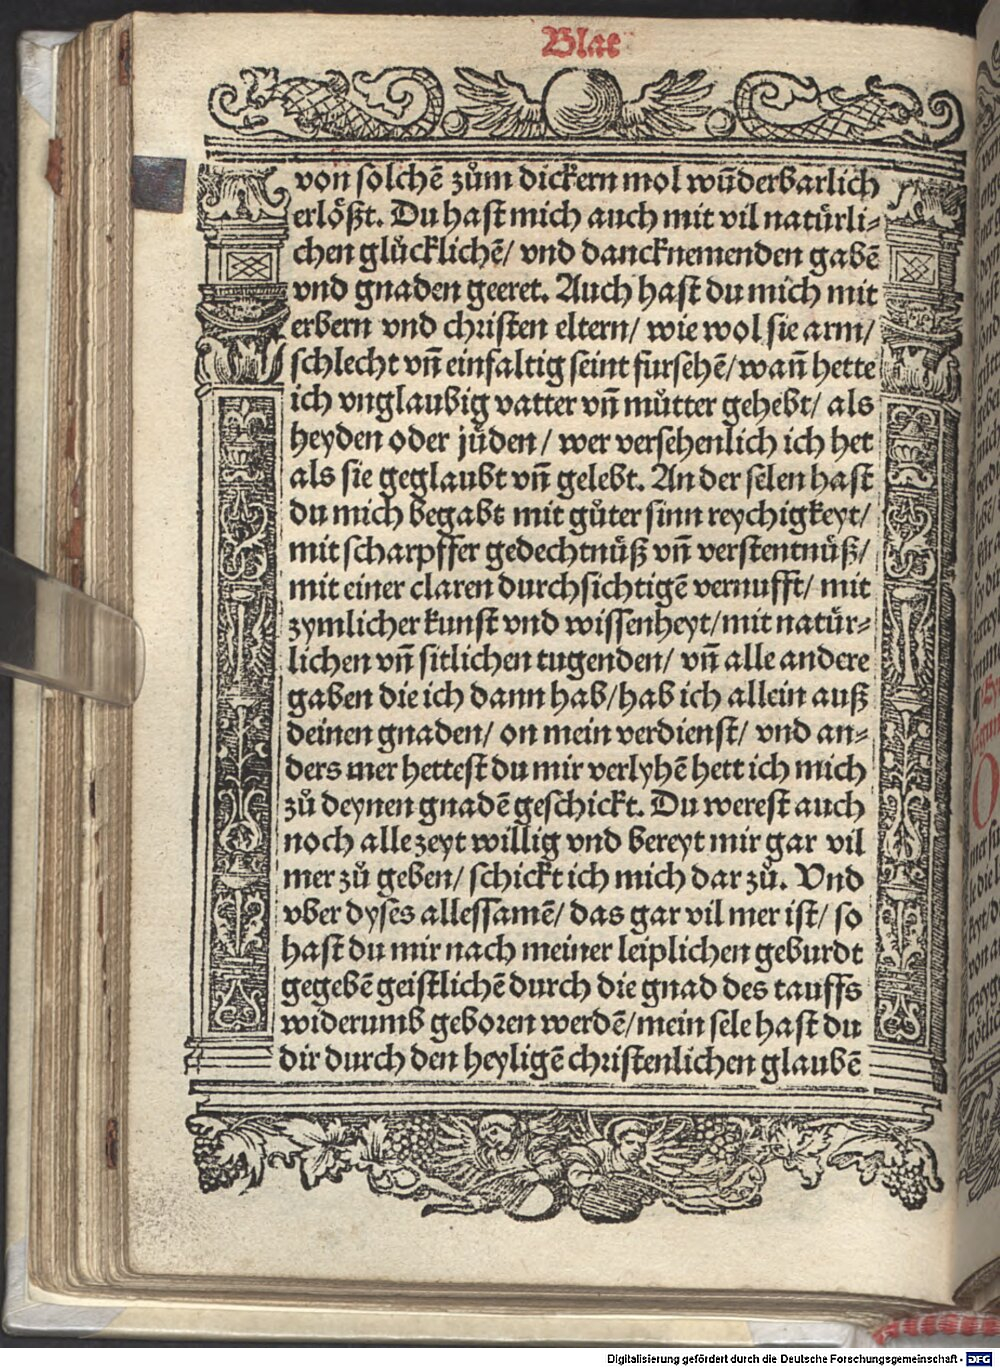 Blat
von solchē zům dickern mol wūderbarlich
erlößt. Du hast mich auch mit vil natürli⸗
chen glücklichē/ vnd dancknemenden gabē
vnd gnaden geeret. Auch hast du mich mit
erbern vnd christen eltern/ wie wol sie arm/
schlecht vn̄ einfaltig seint fürsehē/ wan̄ hette
ich vnglaubig vatter vn̄ můtter gehebt/ als
heyden oder jůden/ wer versehenlich ich het
als sie geglaubt vn̄ gelebt. An der selen hast
du mich begabt mit gůter sinnreychigkeyt/
mit scharpffer gedechtnüß vn̄ verstentnüß/
mit einer claren durchsichtigē vernufft/ mit
zymlicher kunst vnd wissenheyt/ mit natür⸗
lichen vn̄ sitlichen tugenden/ vn̄ alle andere
gaben die ich dann hab/ hab ich allein auß
deinen gnaden/ on mein verdienst/ vnd an⸗
ders mer hettest du mir verlyhē hett ich mich
zů deynen gnadē geschickt. Du werest auch
noch alle zeyt willig vnd bereyt mir gar vil
mer zů geben/ schickt ich mich dar zů. Vnd
vber dyses allessamē/ das gar vil mer ist/ so
hast du mir nach meiner leiplichen geburdt
gegebē geistlichē durch die gnad des tauffs
widerumb geboren werdē/ mein sele hast du
dir durch den heyligē christenlichen glaubē
Digitalisierung gefördert durch die Deutsche Forschungsgemeinschaft - DFG